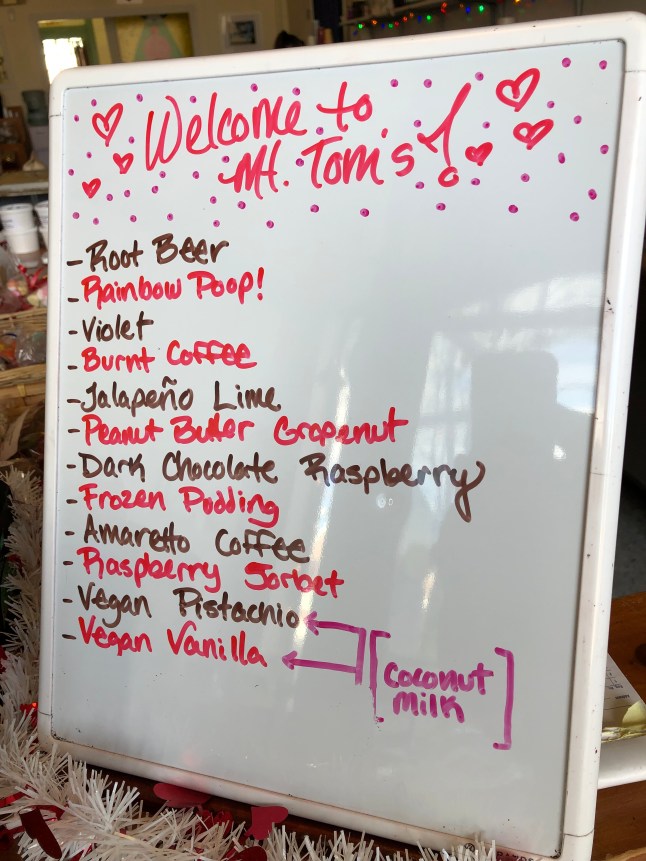 Welcome to
Mt. Tom's!
- Root Beer
- Rainbow Poop!
- Violet
- Burnt Coffee
- Jalapeño Lime
- Peanut Butter Grapenut
- Dark Chocolate Raspberry
- Frozen Pudding
- Amaretto Coffee
- Raspberry Sorbet
- Vegan Pistachio
- Vegan Vanilla
[Coconut
Milk]